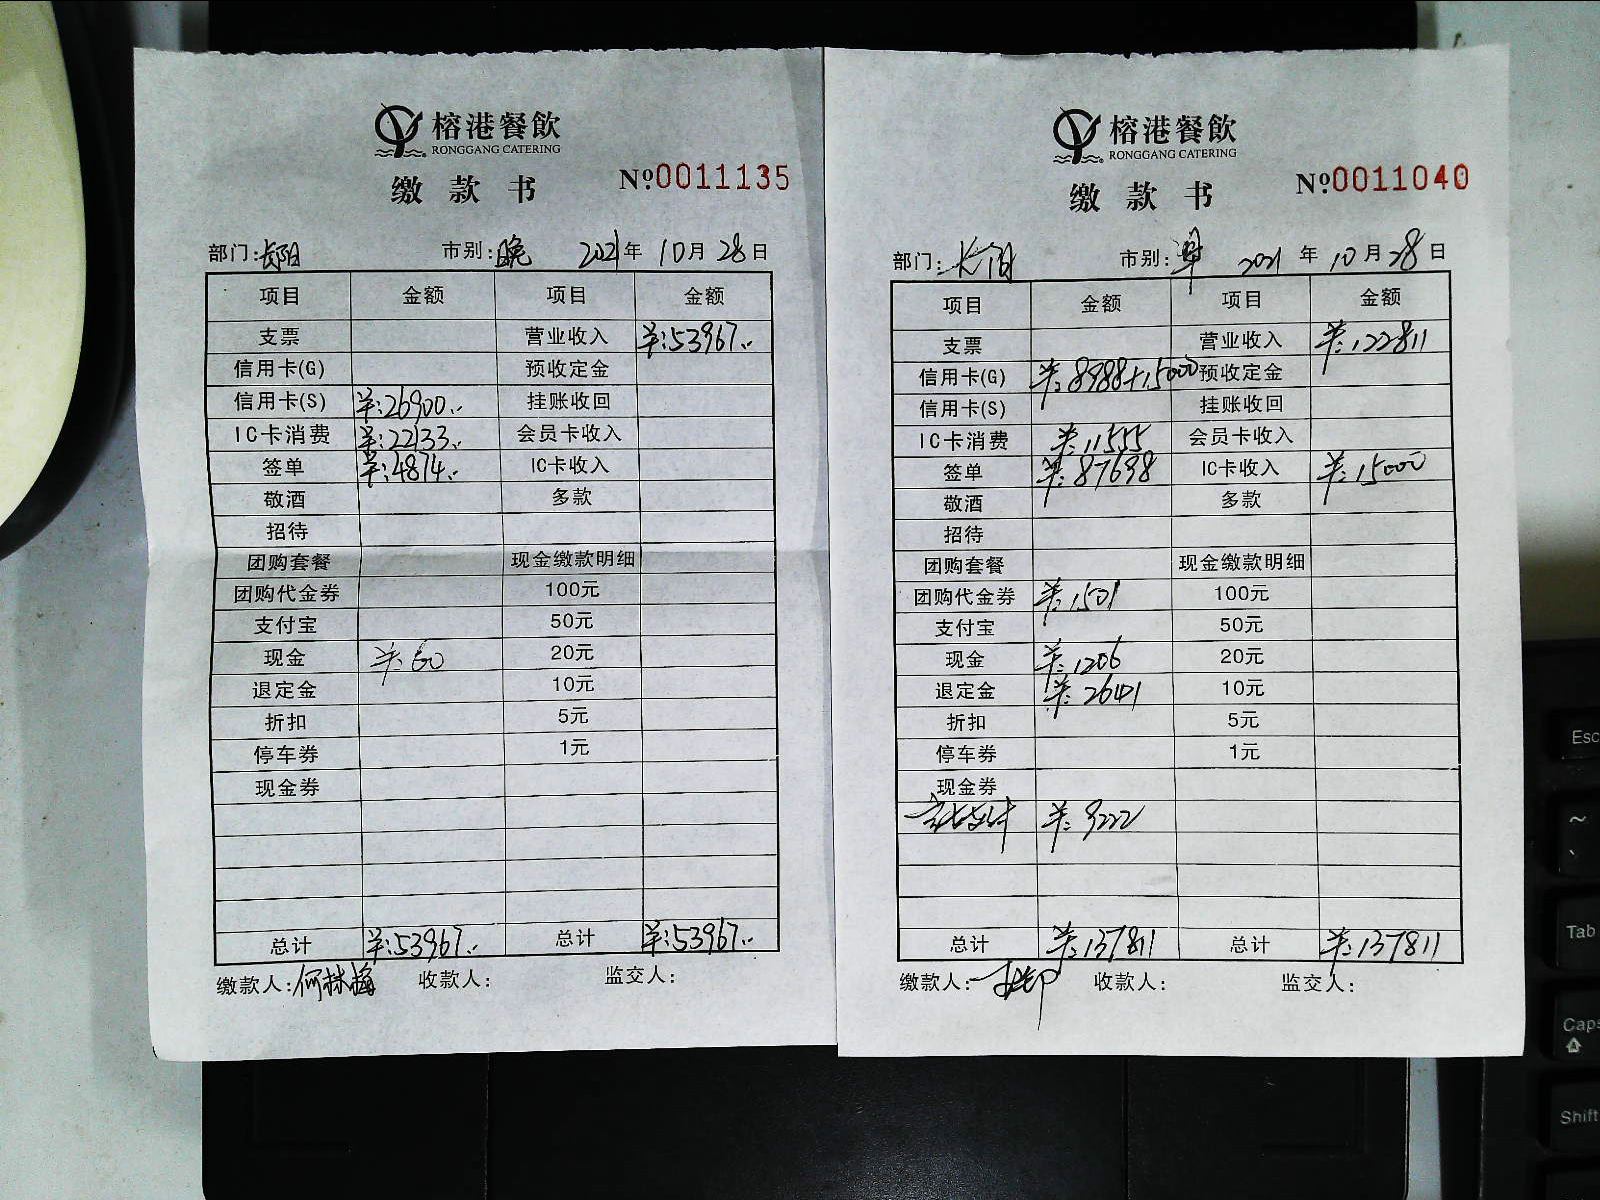 榕港餐飲
RONGGANG CATERING
缴款书 №0011135
部门:长阳 市别:晚 2021年10月28日
项目 金额 项目 金额
支票 营业收入 ¥:53967..
信用卡(G) 预收定金
信用卡(S) ¥:26900.. 挂账收回
IC卡消费 ¥:22133.. 会员卡收入
签单 ¥:4874.. IC卡收入
敬酒 多款
招待
团购套餐 现金缴款明细
团购代金券 100元
支付宝 50元
现金 ¥:60 20元
退定金 10元
折扣 5元
停车券 1元
现金券
总计 ¥:53967.. 总计 ¥:53967..
缴款人:何林梅 收款人: 监交人:
榕港餐飲
RONGGANG CATERING
缴款书 №0011040
部门: 市别: 2021年10月28日
项目 金额 项目 金额
支票 营业收入 ¥:122811
信用卡(G) ¥:8988+15000 预收定金
信用卡(S) 挂账收回
IC卡消费 ¥:11555 会员卡收入
签单 ¥:87698 IC卡收入 ¥:15000
敬酒 多款
招待
团购套餐 现金缴款明细
团购代金券 ¥:1501 100元
支付宝 50元
现金 ¥:1206 20元
退定金 ¥:2641 10元
折扣 5元
停车券 1元
现金券
¥:9222
总计 ¥:137811 总计 ¥:137811
缴款人: 收款人: 监交人:
Esc
~
Tab
Caps
Shift